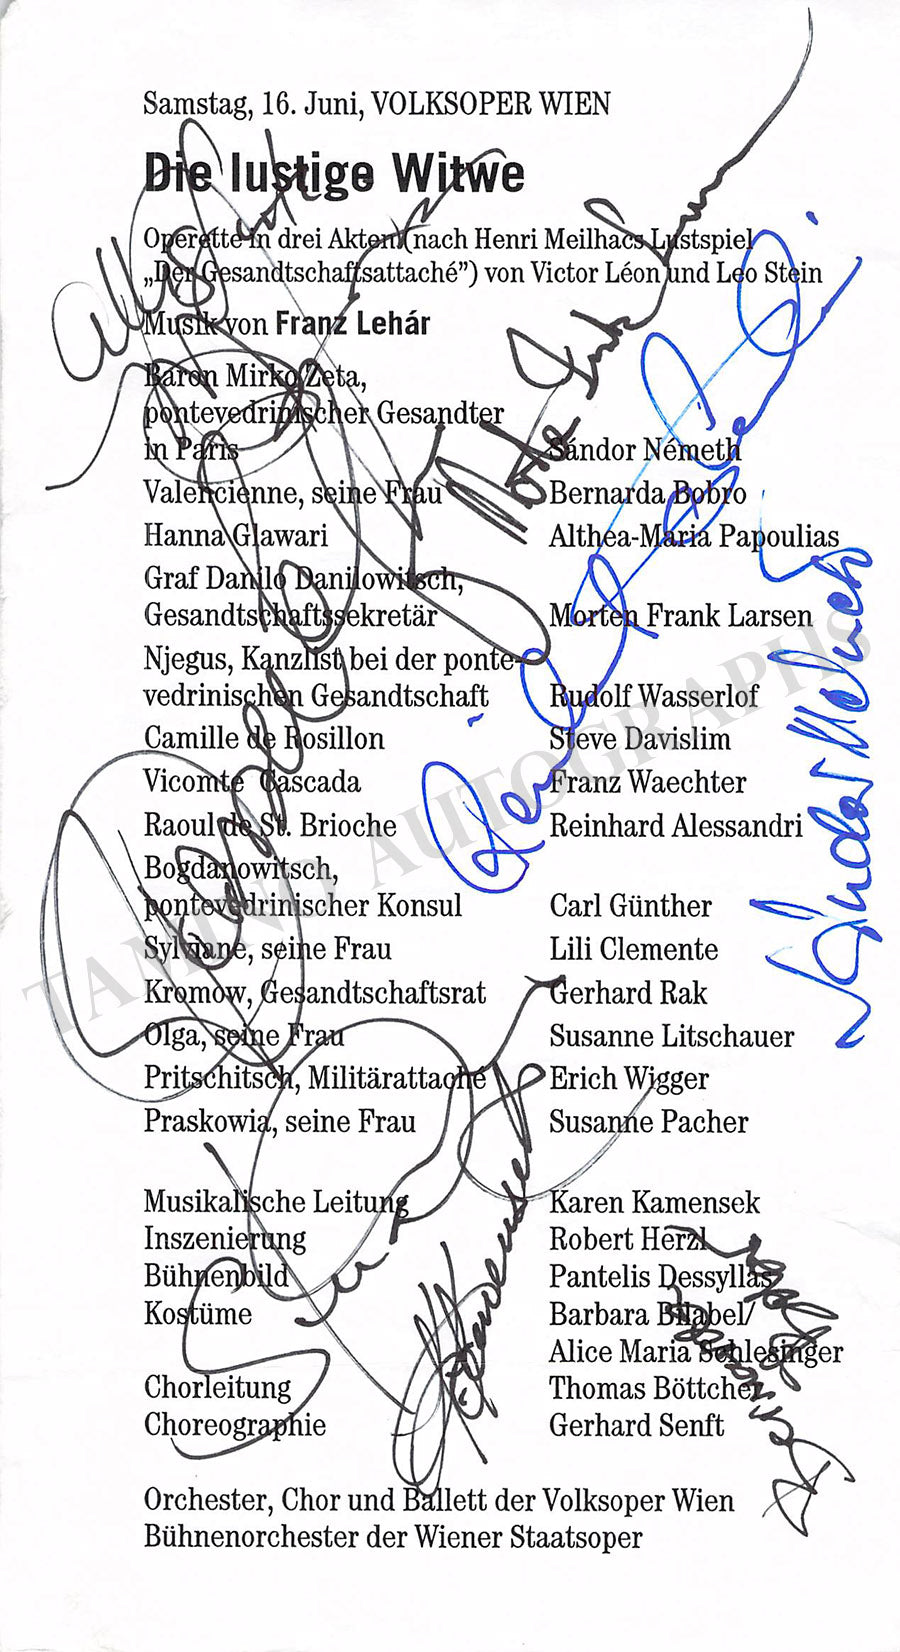 Samstag, 16. Juni, VOLKSOPER WIEN
Die lustige Witwe
Operette in drei Akten (nach Henri Meilhacs Lustspiel
„Der Gesandtschaftsattaché”) von Victor Léon und Leo Stein
Musik von Franz Lehár
Baron Mirko Zeta,
pontevedrinischer Gesandter
in Paris Sándor Németh
Valencienne, seine Frau Bernarda Bobro
Hanna Glawari Althea-Maria Papoulias
Graf Danilo Danilowitsch,
Gesandtschaftssekretär Morten Frank Larsen
Njegus, Kanzlist bei der ponte-
vedrinischen Gesandtschaft Rudolf Wasserlof
Camille de Rosillon Steve Davislim
Vicomte Cascada Franz Waechter
Raoul de St. Brioche Reinhard Alessandri
Bogdanowitsch,
pontevedrinischer Konsul Carl Günther
Sylviane, seine Frau Lili Clemente
Kromow, Gesandtschaftsrat Gerhard Rak
Olga, seine Frau Susanne Litschauer
Pritschitsch, Militärattaché Erich Wigger
Praskowia, seine Frau Susanne Pacher
Musikalische Leitung Karen Kamensek
Inszenierung Robert Herzl
Bühnenbild Pantelis Dessyllas
Kostüme Barbara Bilabel/
Alice Maria Schlesinger
Chorleitung Thomas Böttcher
Choreographie Gerhard Senft
Orchester, Chor und Ballett der Volksoper Wien
Bühnenorchester der Wiener Staatsoper
TAMINO AUTOGRAPHS